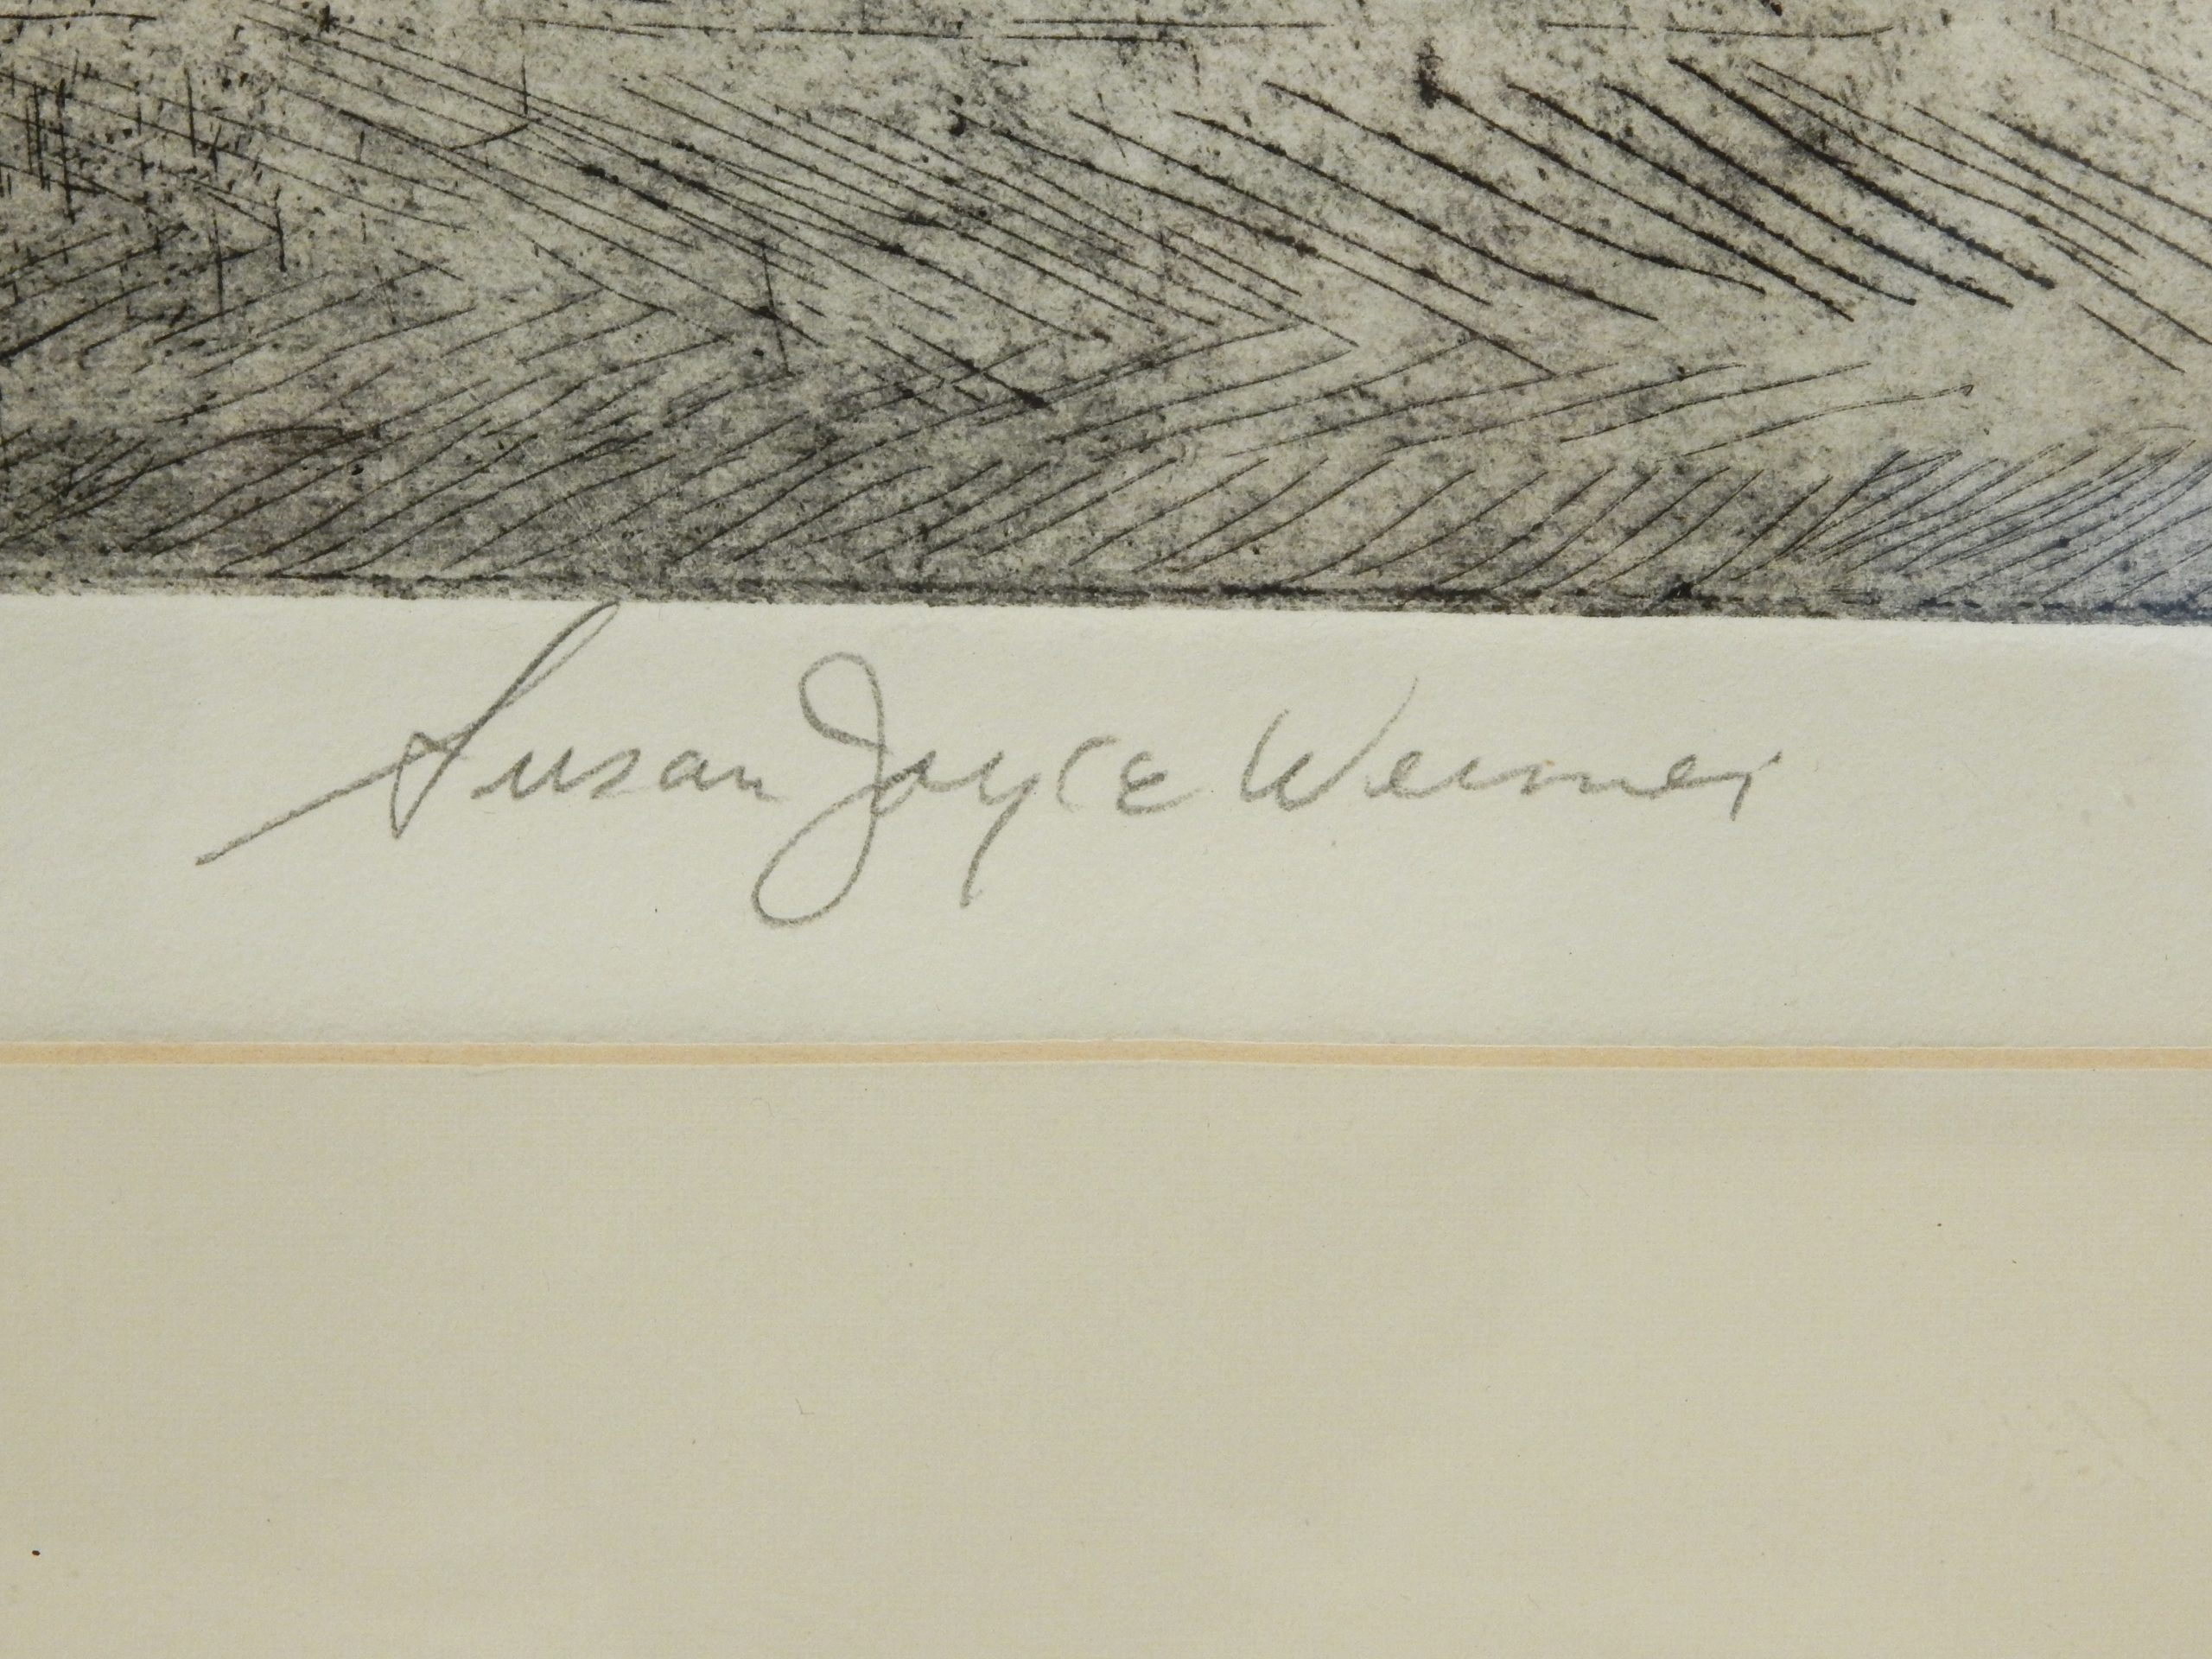 Susan Joyce Weimer